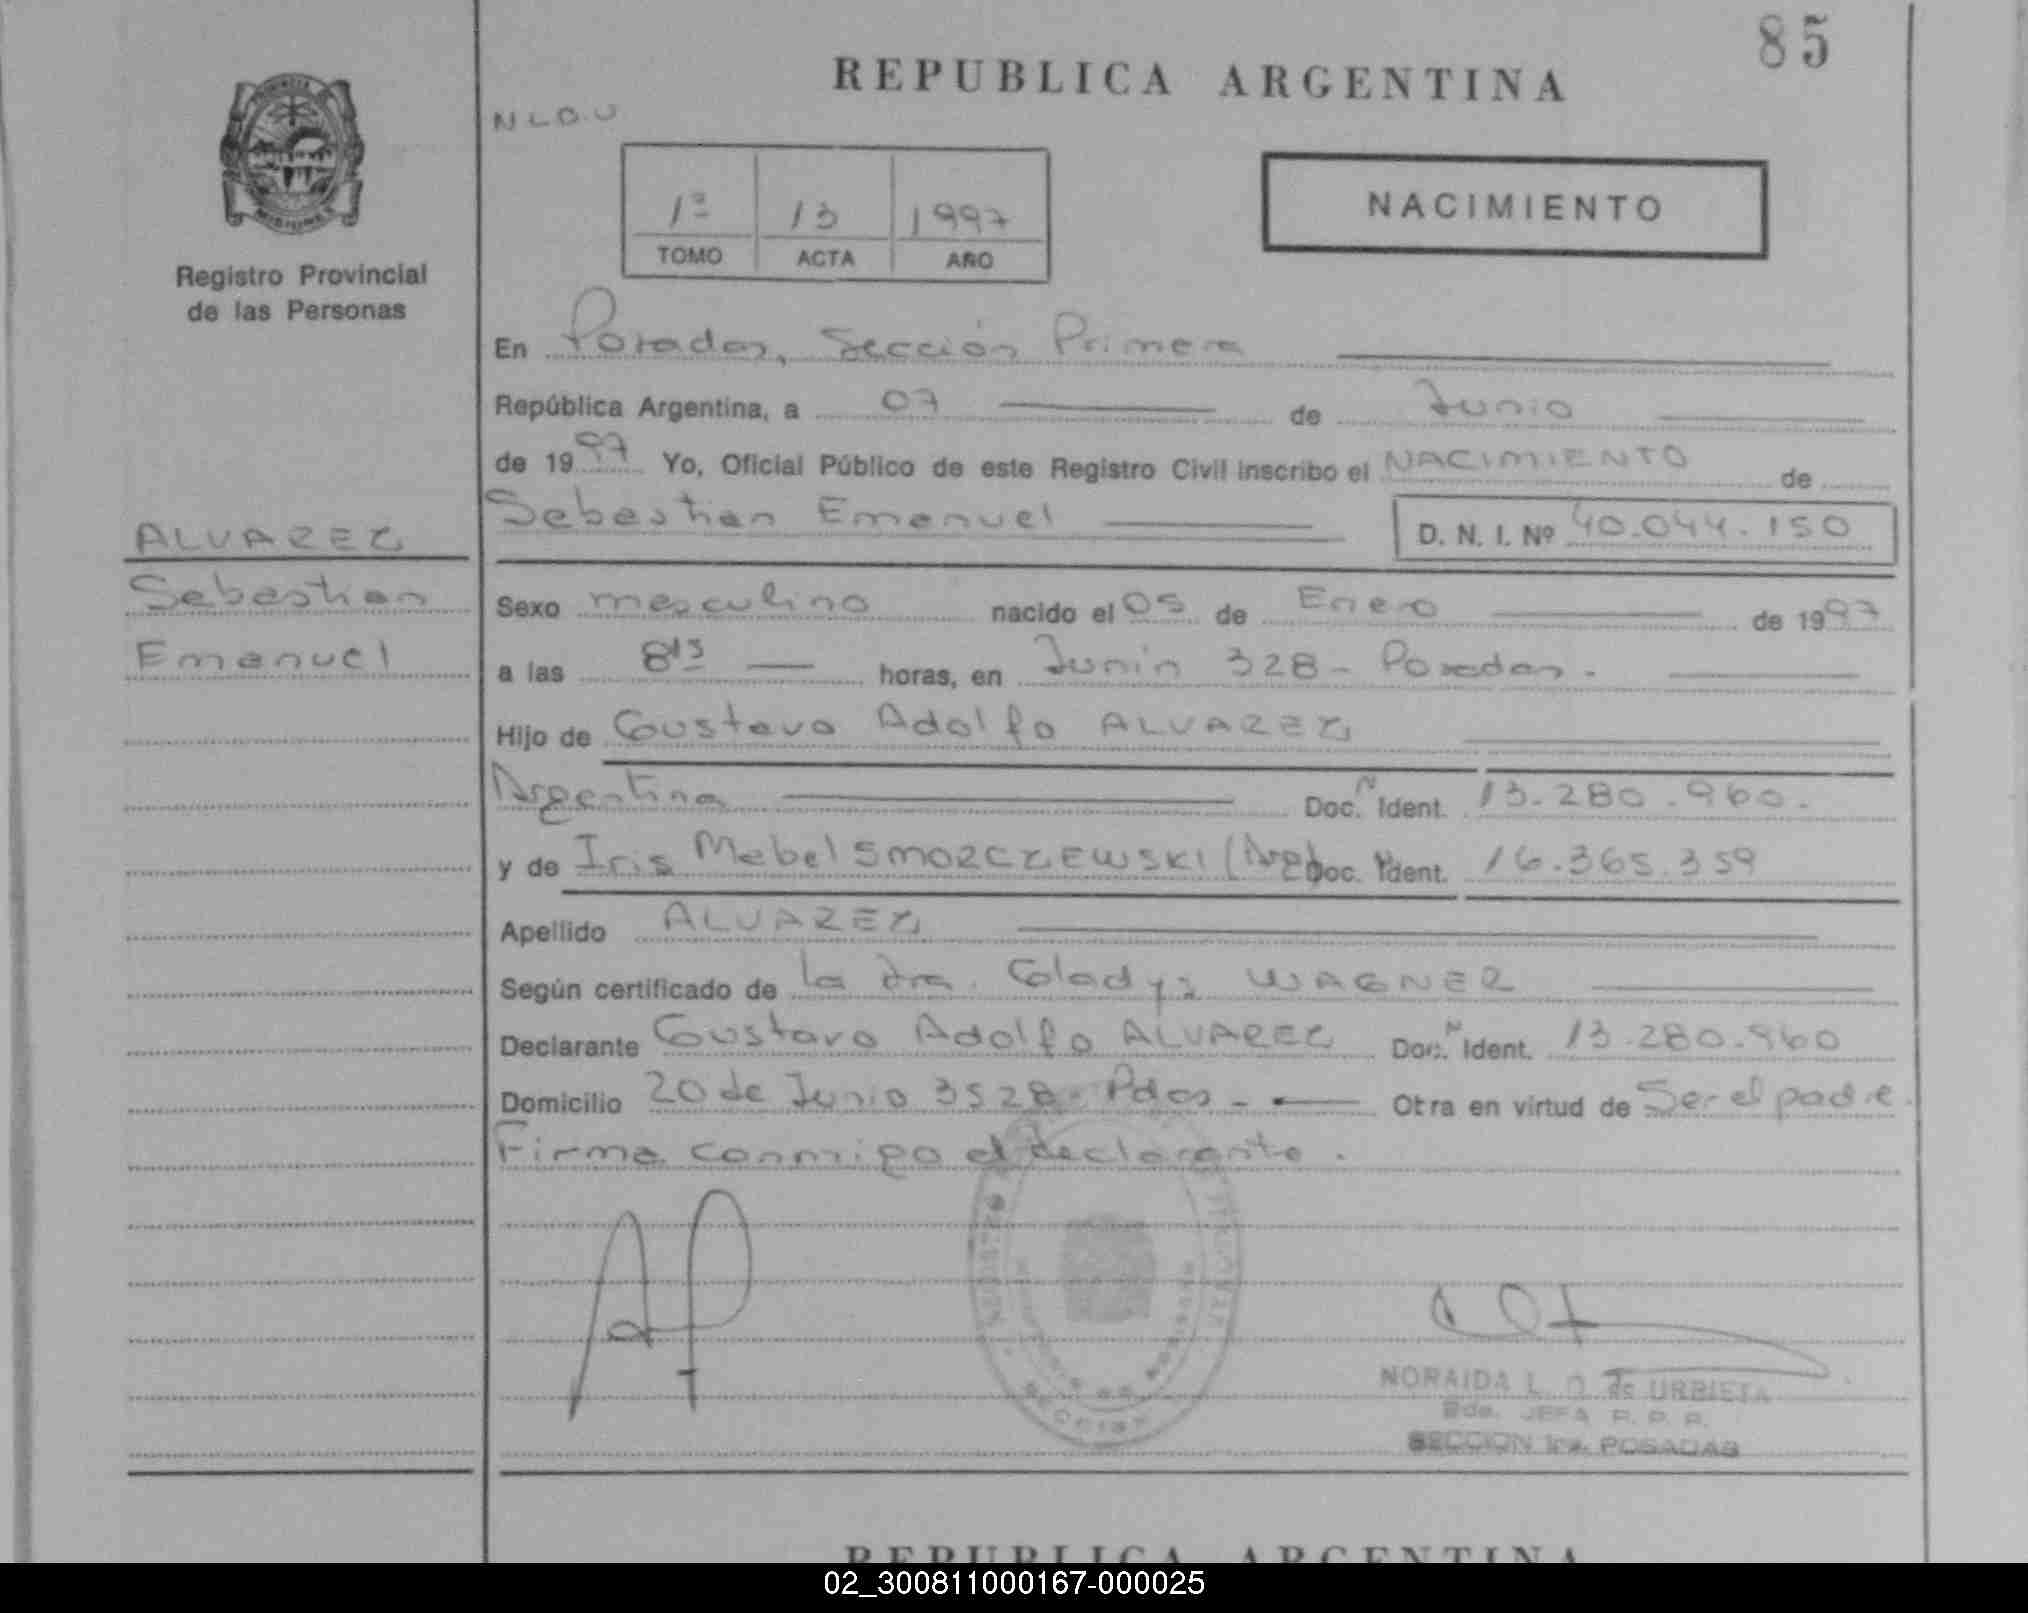 85
REPUBLICA ARGENTINA
N L O. U
1º 13 1997
TOMO ACTA AÑO
NACIMIENTO
Registro Provincial
de las Personas
En Posadas, Sección Primera
República Argentina, a 07 de Junio
de 1997 Yo, Oficial Público de este Registro Civil inscribo el NACIMIENTO de
Sebastian Emanuel D. N. I. Nº 40.044.150
ALVAREZ
Sebastian
Emanuel
Sexo masculino nacido el 05 de Enero de 1997
a las 8¹⁵ horas, en Junin 328 - Posadas.
Hijo de Gustavo Adolfo ALVAREZ
Argentina Doc. N Ident. 13.280.960.
y de Iris Mabel SMORCZEWSKI (Arg) Doc. N Ident. 16.365.359
Apellido ALVAREZ
Según certificado de la dra. Gladys WAGNER
Declarante Gustavo Adolfo ALVAREZ Doc. N Ident. 13.280.960
Domicilio 20 de Junio 3528 - Pdas - Otra en virtud de Ser el padre.
Firma conmigo el declarante.
NORAIDA L. O. de URBIETA
JEFA R. P. P.
SECCION 1ra. POSADAS
SECCION
REPUBLICA ARGENTINA
02_300811000167-000025